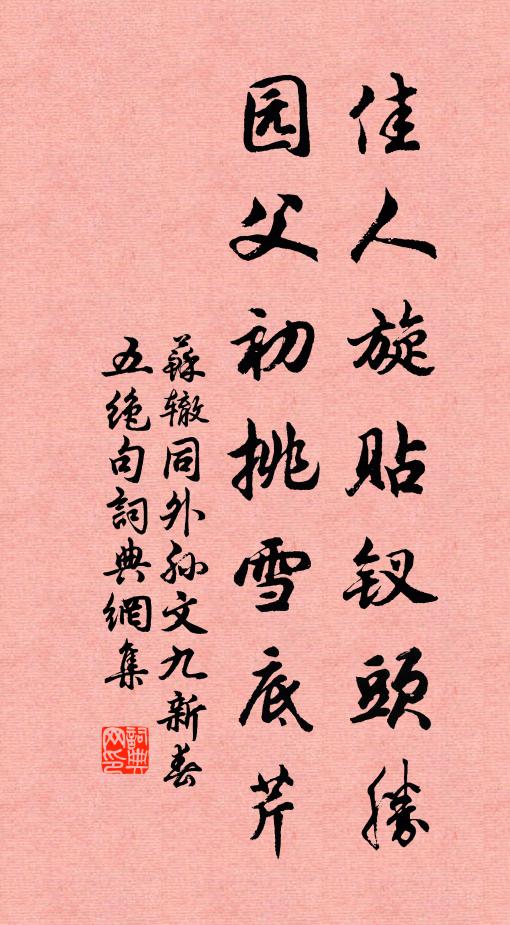 佳人旋貼钗頭勝
园父初挑雪底芹
蘇辙同外孙文九新春
五绝句詞典網集
詞典网印